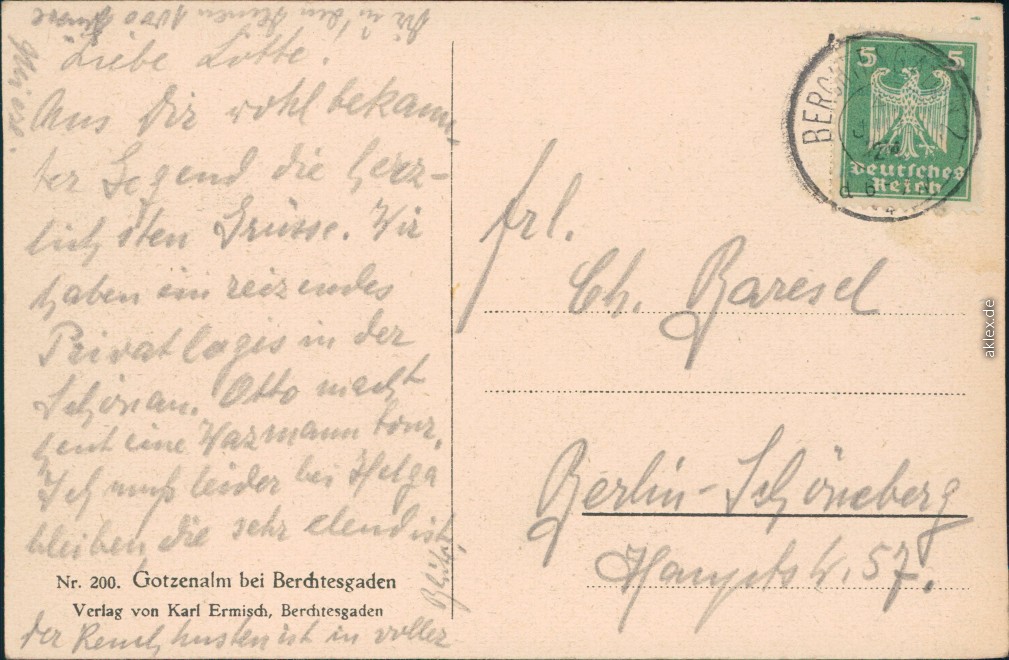 Liebe Lotte.
Aus Dir wohl bekann-
ter Gegend die herz-
lichsten Grüsse. Wir
haben ein reizendes
Privatlogis in der
Schönau. Otto macht
heut eine Wazmann tour.
Ich muß leider bei Helga
bleiben, die sehr elend ist,
der Keuchhusten ist in voller
Blüte.
Dir u. den 1000
Grüsse
Nr. 200. Gotzenalm bei Berchtesgaden
Verlag von Karl Ermisch, Berchtesgaden
5 5
Deutsches
Reich
BERCHTESGADEN 2
Frl.
Ch. Baresel
Berlin-Schöneberg
Hauptstr. 57.
aklex.de